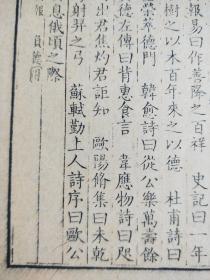 報易曰作善降之百祥　史記曰一年
樹之以木百年來之以德　杜甫詩曰
德門　韓愈詩曰從公樂萬壽餘
德左傳曰背惠食言　韋應物詩曰咫
出君焦灼君詎知　歐陽脩集曰未乾
射羿之弓　蘇軾勤上人詩序曰歐公
息俄頃之際
報　負德